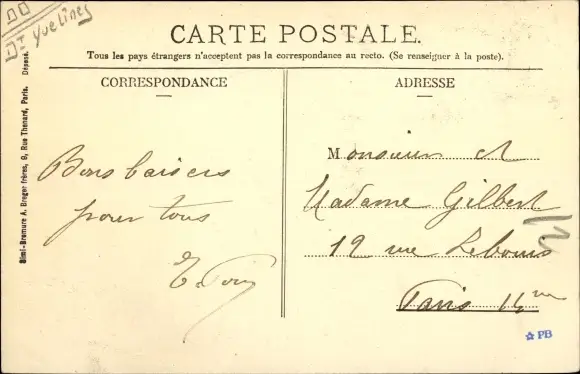 Yvelines
CARTE POSTALE.
Tous les pays étrangers n'acceptent pas la correspondance au recto. (Se renseigner à la poste).
CORRESPONDANCE
ADRESSE
Simi-Bromure A. Breger frères, 9, Rue Thenard, Paris. Déposé.
Bons baisers
pour tous
E.
Monsieur et
Madame Gilbert
12 rue Lebouis
Paris 14me
12
PB